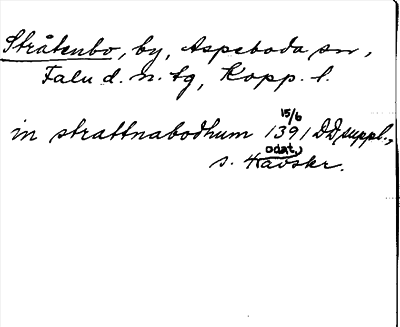 Stråtenbo, by, Aspeboda sn,
Falu d. n. tg, Kopp. l.
15/6
in strattnabodhum 1391 DD suppl.,
odat.,
s. Havskr.